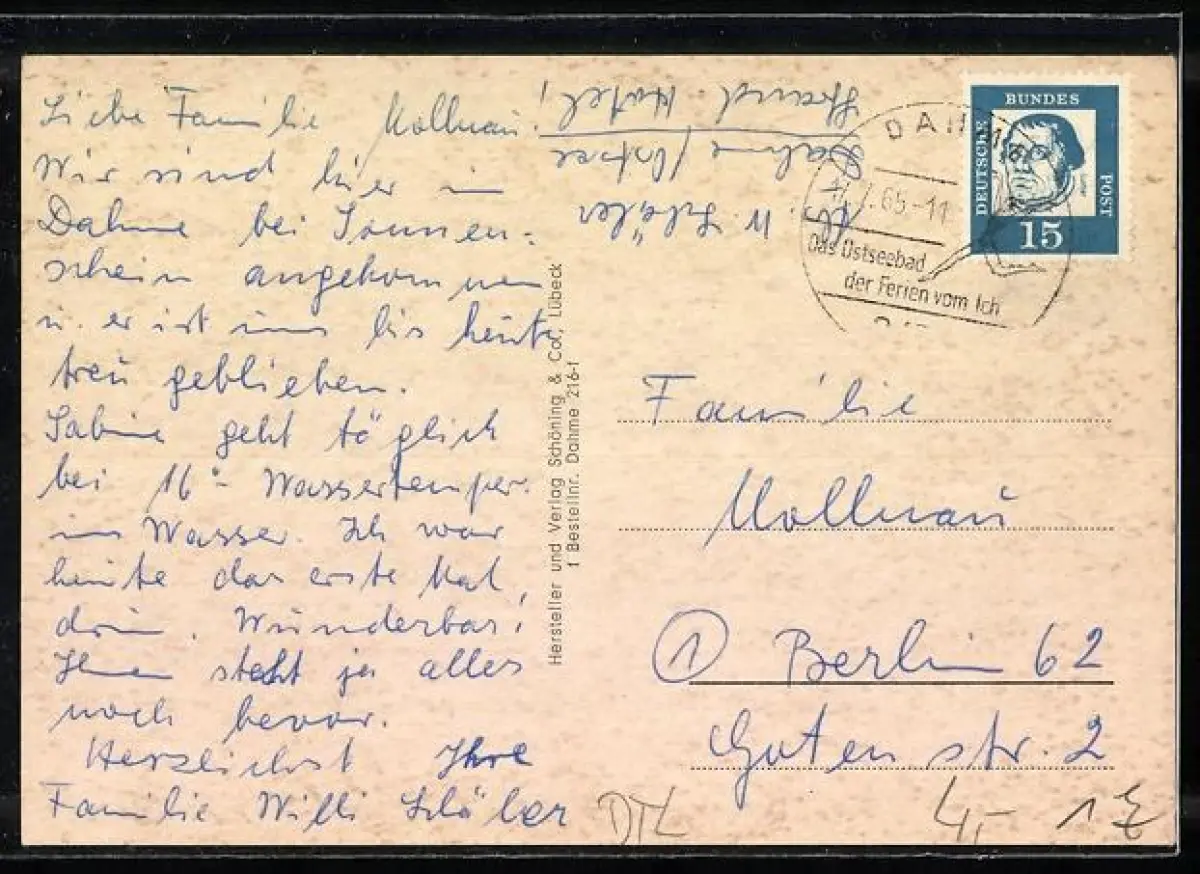 Liebe Familie Mollnau!
Wir sind hier in
Dahme bei Sonnen-
schein angekommen
u. er ist uns bis heute
treu geblieben.
Sabine geht täglich
bei 16°- Wassertemper.
ins Wasser. Ich war
heute das erste Mal
drin. Wunderbar!
Ihnen steht ja alles
noch bevor.
Herzlichst Ihre
Familie Willi
Abs. W.
Dahme/Ostsee
Strand-Hotel
Hersteller und Verlag Schöning & Co., Lübeck
1 Bestellnr. Dahme 216-1
DAHME
.7.65-11
Das Ostseebad
der Ferien vom Ich
DEUTSCHE
BUNDES
POST
15
Familie
Mollnau
1 Berlin 62
Gotenstr. 2
DTL
4,- 1Z